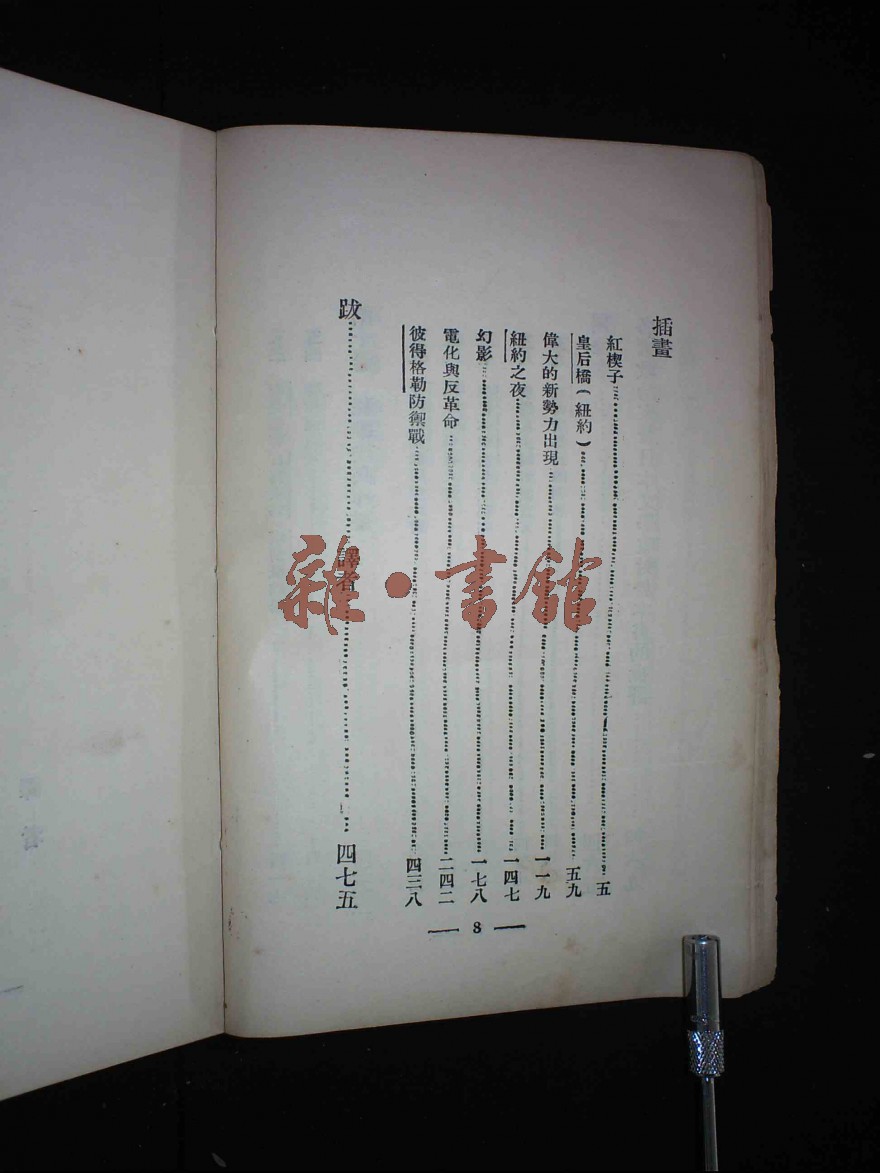 插畫
紅楔子 五
皇后橋(紐約) 五九
偉大的新勢力出現 一一九
紐約之夜 一四七
幻影 一七八
電化與反革命 二四二
彼得格勒防禦戰 四三八
跋 譯者 四七五
— 8 —
雜·書館